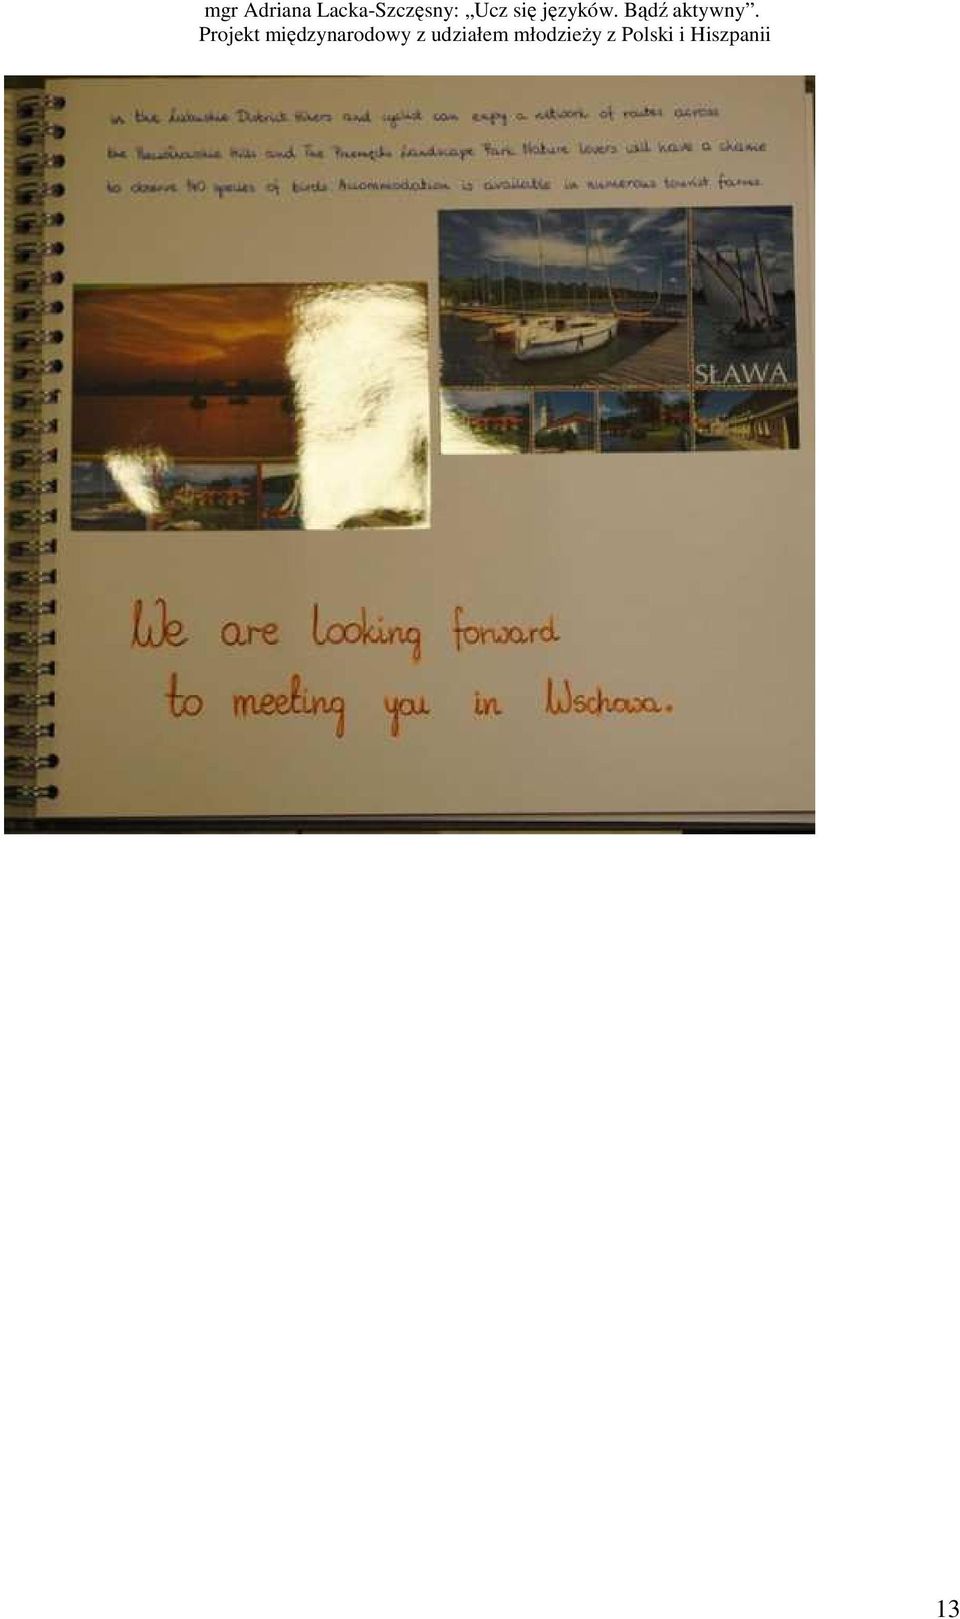 mgr Adriana Lacka-Szczęsny: „Ucz się języków. Bądź aktywny”.
Projekt międzynarodowy z udziałem młodzieży z Polski i Hiszpanii
in the Lubuskie District Hikers and cyclist can enjoy a network of routes across
the Hills and The Landscape Park Nature lovers will have a chance
to observe species of birds. Accommodation is available in numerous tourist farms.
SŁAWA
We are looking forward
to meeting you in Wschowa.
13